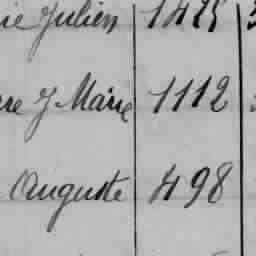 Julien 1425
J Marie 1112
Auguste 498